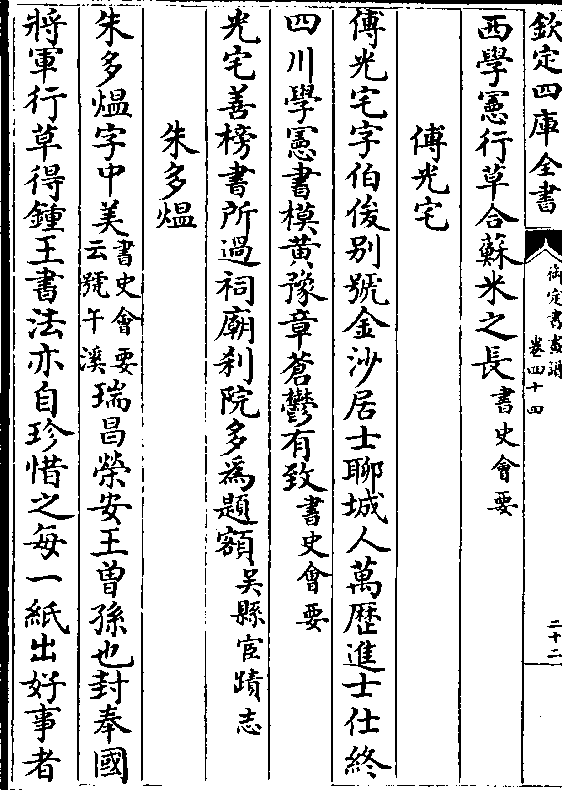 欽定四庫全書
御定書畫譜
卷四十四
二十二
西學憲行草合蘇米之長書史會要
傅光宅
傅光宅字伯俊别號金沙居士聊城人萬歷進士仕終
四川學憲書模黄豫章蒼鬱有致書史會要
光宅善榜書所過祠廟刹院多為題額吳縣宦蹟志
朱多熅
朱多熅字中美書史會要云號午溪瑞昌榮安王曽孫也封奉國
將軍行草得鍾王書法亦自珍惜之每一紙出好事者